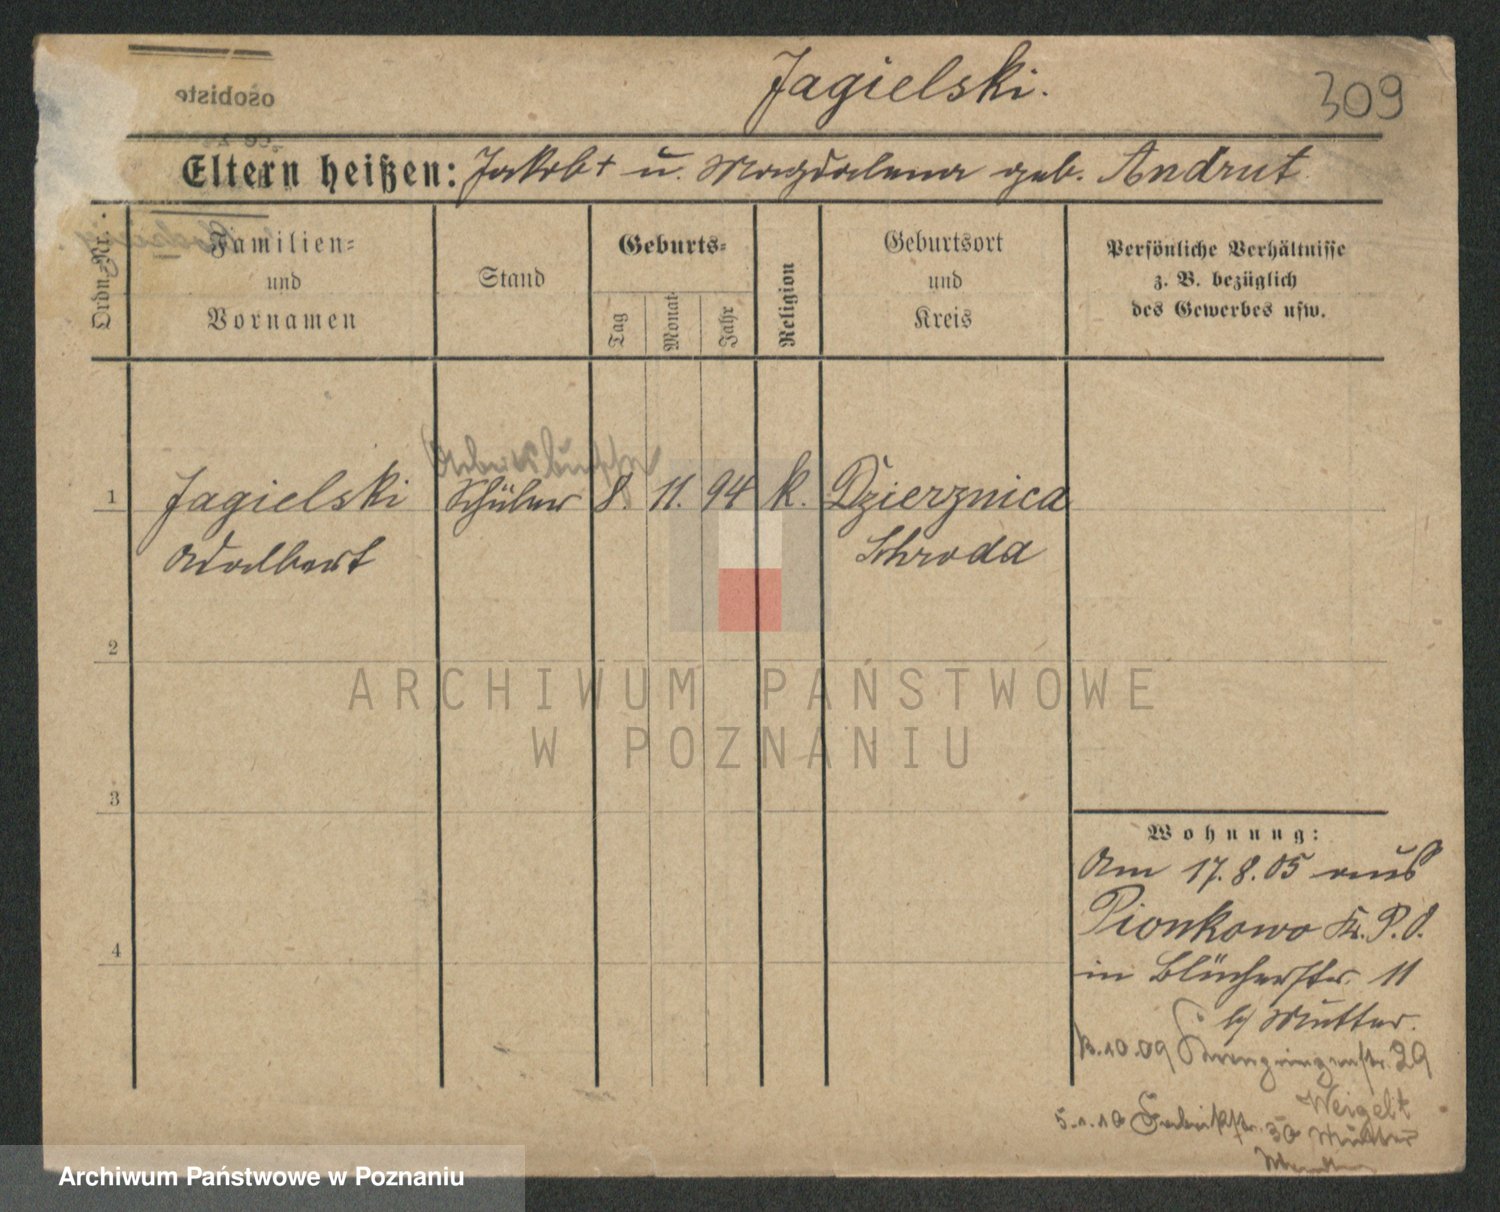 osobiste
Jagielski.
309
Eltern heißen: Jakob + u. Magdalena geb. Andrut
Ordn.-Nr.
Familien-
und
Vornamen
Stand
Geburts-
Tag
Monat
Jahr
Religion
Geburtsort
und
Kreis
Persönliche Verhältnisse
z. B. bezüglich
des Gewerbes usw.
Arbeitsbursche
1 Jagielski Schüler 8. 11. 94 k. Dzierznica
Adalbert Schroda
2
ARCHIWUM PAŃSTWOWE
W POZNANIU
3
Wohnung:
Am 17.8.05 aus
Pionkowo Kr. P.O.
4
in Blücherstr. 11
b/ Mutter.
10.09 29
Weigelt
5.1.10 Fabrikstr. 30 Mutter
Archiwum Państwowe w Poznaniu